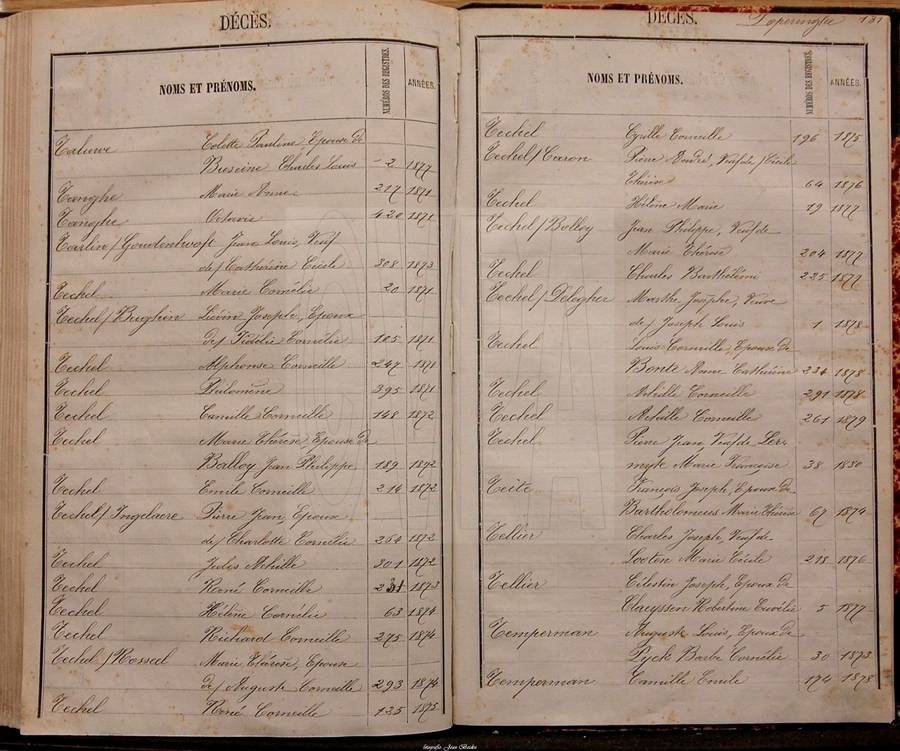 DÉCÈS.
NOMS ET PRÉNOMS. NUMÉROS DES REGISTRES. ANNÉES.
Taluwe Colette Pauline, Epouse de
Buseine Charles Louis 2 1877
Tanghe Marie Anne 217 1871
Tanghe Octavie 420 1871
Tarlin / Goudenhooft Jean Louis, Veuf
de / Catherine Cécile 308 1873
Techel Marie Cornélie 20 1871
Techel / Beughin Livin Joseph, Epoux
de / Fidélie Cornélie 105 1871
Techel Alphonse Corneille 247 1871
Techel Philomène 395 1871
Techel Camille Corneille 148 1872
Techel Marie Thérèse, Epouse de
Balloy Jean Philippe 189 1872
Techel Emile Corneille 214 1872
Techel / Ingelaere Pierre Jean, Epoux
de / Charlotte Cornélie 264 1872
Techel Jules Achille 301 1872
Techel René Corneille 231 1873
Techel Hélène Cornélie 63 1874
Techel Richard Corneille 275 1874
Techel / Rosseel Marie Thérèse, Epouse
de / Auguste Corneille 293 1874
Techel René Corneille 125 1875
DÉCÈS. Poperinghe 131
NOMS ET PRÉNOMS. NUMÉROS DES REGISTRES. ANNÉES.
Techel Cyrille Corneille 196 1875
Techel / Caron Pierre André, Veuf de / Cécile
Thérèse 64 1876
Techel Hélène Marie 19 1877
Techel / Balloy Jean Philippe, Veuf de
Marie Thérèse 204 1877
Techel Charles Barthélémi 225 1877
Techel / Deleghe Marthe Josèphe, Veuve
de / Joseph Louis 1 1878
Techel Louis Corneille, Epoux de
Bonte Anne Cathérine 234 1878
Techel Achille Corneille 291 1878
Techel Achille Corneille 261 1879
Techel Pierre Jean, Veuf de Ler-
myte Marie Françoise 38 1880
Teite François Joseph, Epoux de
Bartholomeus Marie Thérèse 67 1874
Tellier Charles Joseph, Veuf de
Looten Marie Cécile 218 1876
Tellier Célestin Joseph, Epoux de
Claeysson Robertine Eusélie 5 1877
Temperman Auguste Louis, Epoux de
Pyck Barbe Cornélie 30 1873
Temperman Camille Emile 174 1878